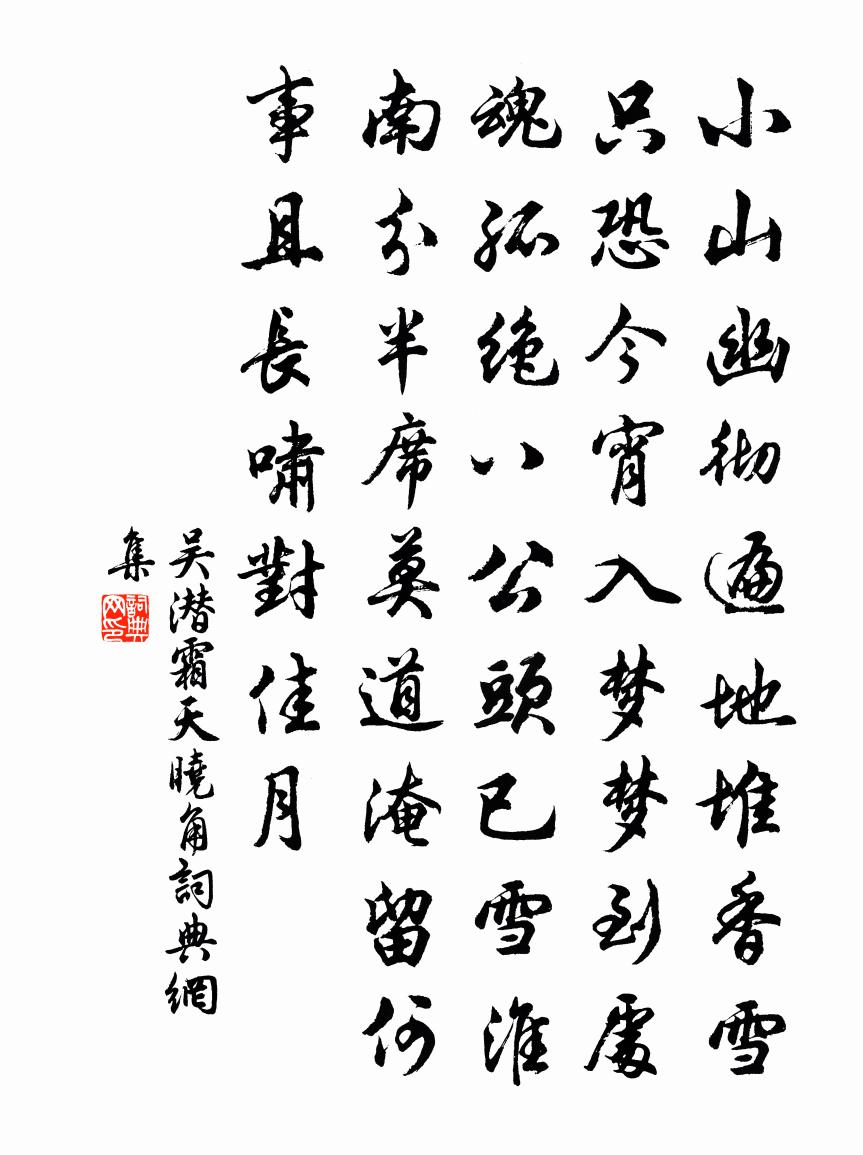 小山幽彻遍地堆香雪
只恐今宵入梦梦到處
魂孤绝八公頭已雪淮
南分半席莫道淹留何
事且長嘯對佳月
吴潜霜天曉角詞典網
集
詞典网印